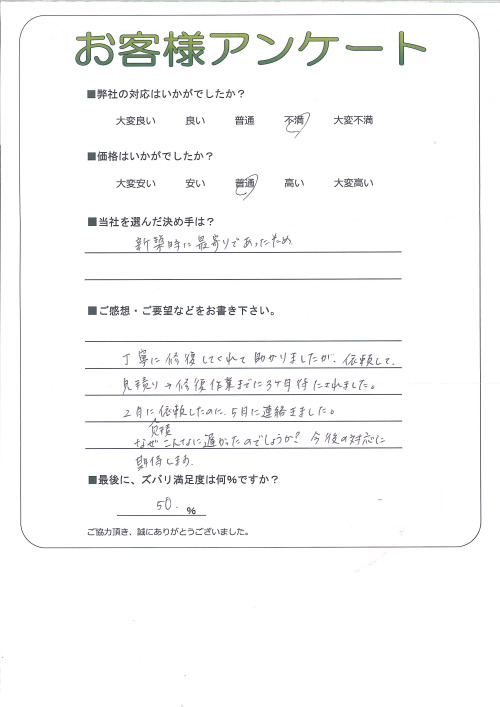 お客様アンケート
■弊社の対応はいかがでしたか？
大変良い 良い 普通 不満 大変不満
■価格はいかがでしたか？
大変安い 安い 普通 高い 大変高い
■当社を選んだ決め手は？
新築時に最寄りであったため
■ご感想・ご要望などをお書き下さい。
丁寧に修復してくれて助かりましたが、依頼して、
見積り→修復作業までに3ヶ月待たされました。
2月に依頼したのに、5月に連絡きました。
見積
なぜこんなに遅かったのでしょうか？ 今後の対応に
期待します。
■最後に、ズバリ満足度は何％ですか？
50. ％
ご協力頂き、誠にありがとうございました。